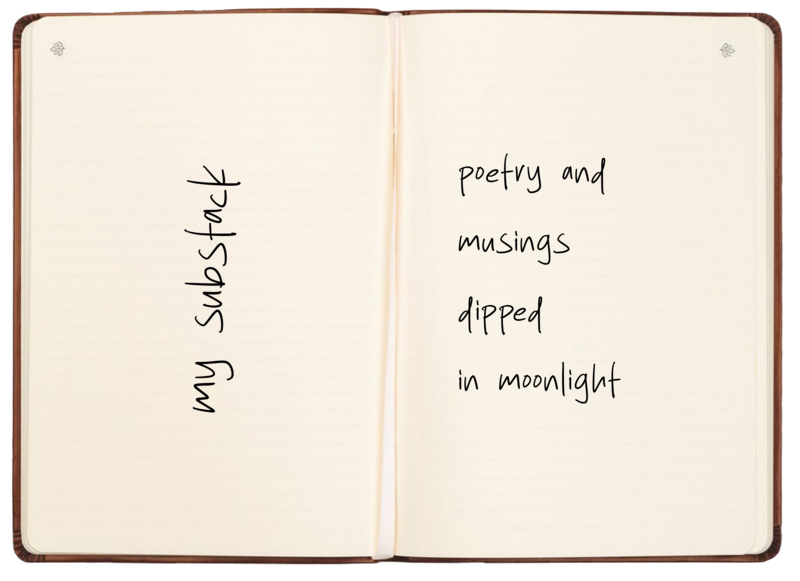 my substack
poetry and
musings
dipped
in moonlight